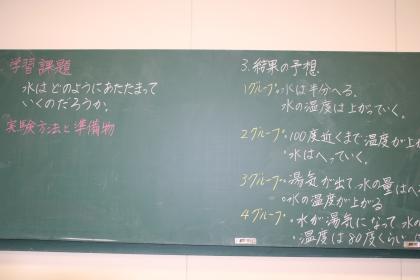 学習課題
水はどのようにあたたまって
いくのだろうか。
実験方法と準備物
3.結果の予想.
1グループ・水は半分へる.
水の温度は上がっていく。
2グループ・100度近くまで温度が上
・水はへっていく.
3グループ・湯気が出て水の量はへ
・水の温度が上がる
4グループ・水が湯気になって水
・温度は80度くらい